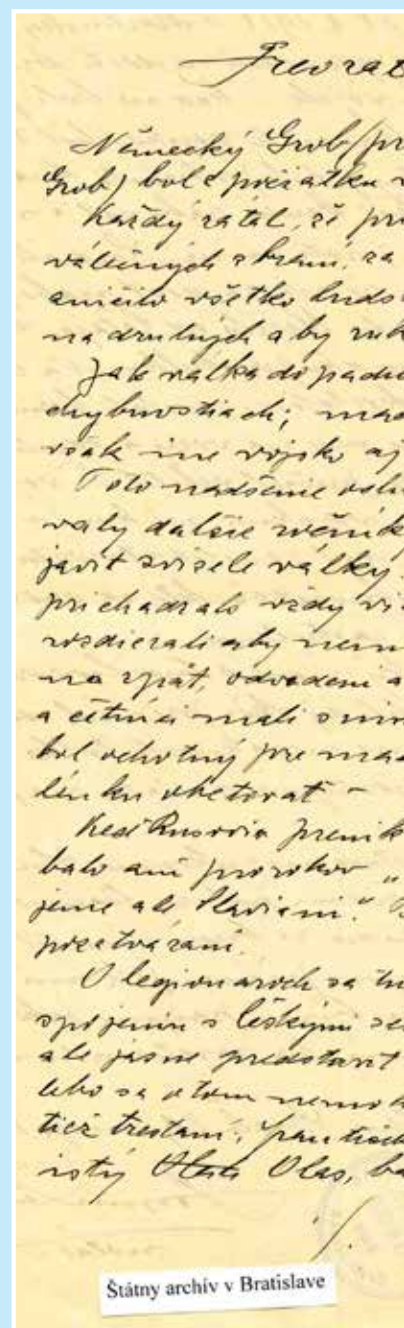 Prevrat
Německý Grob (pr
Grob) bol z počiatku v
Každý rátal, že pri
válečných zbraní, za
aničilo všetko ľuds
na druhých a by ruk
Jak valka dopadn
chybnostiach; mad
však ine vojsko aj
Toto nadšenie
valy dalšie ročník
javit svisele války.
prichadzalo vždy vi
rozdierali aby nem
na zpät, odvedeni a
a četníci mali s nim
bol ochotný pre mad
lénku obetovať –
Keď Rusovia prenik
balo ani prorokov „
jeme ale Slaviani." B
pozatvárani.
O legionaroch sa hu
spojenim s českými
ale jasne predstavit
lebo sa o tom nemoh
tiež trestaní. pantisch
istý Olas, ba
/.
Štátny archív v Bratislave